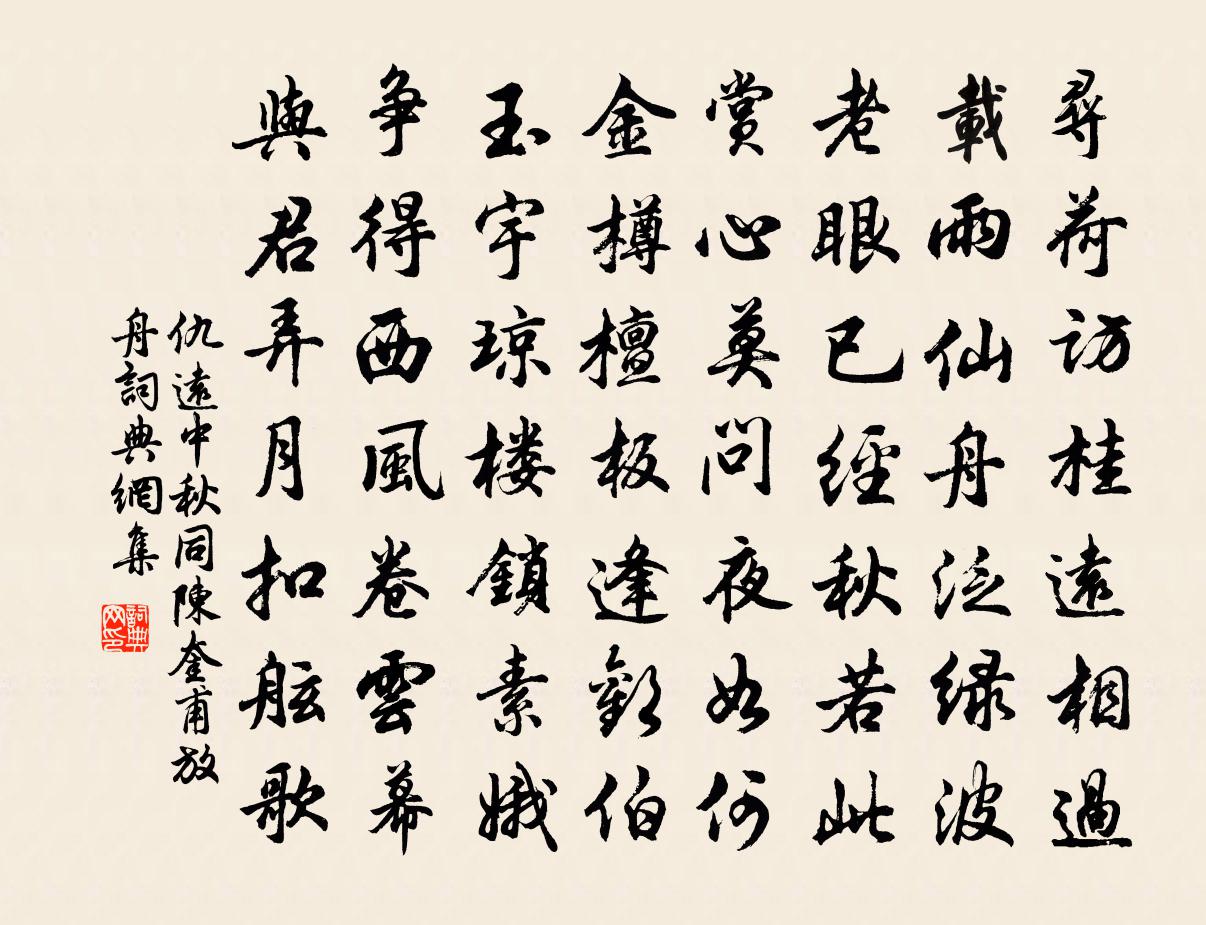 尋荷訪桂遠相過
載雨仙舟泛緑波
老眼已經秋若此
賞心莫問夜如何
金樽檀板逢歡伯
玉宇琼楼鎖素娥
爭得西風卷雲幕
與君弄月扣舷歌
仇遠中秋同陳奎甫放
舟詞典網集
詞典网印